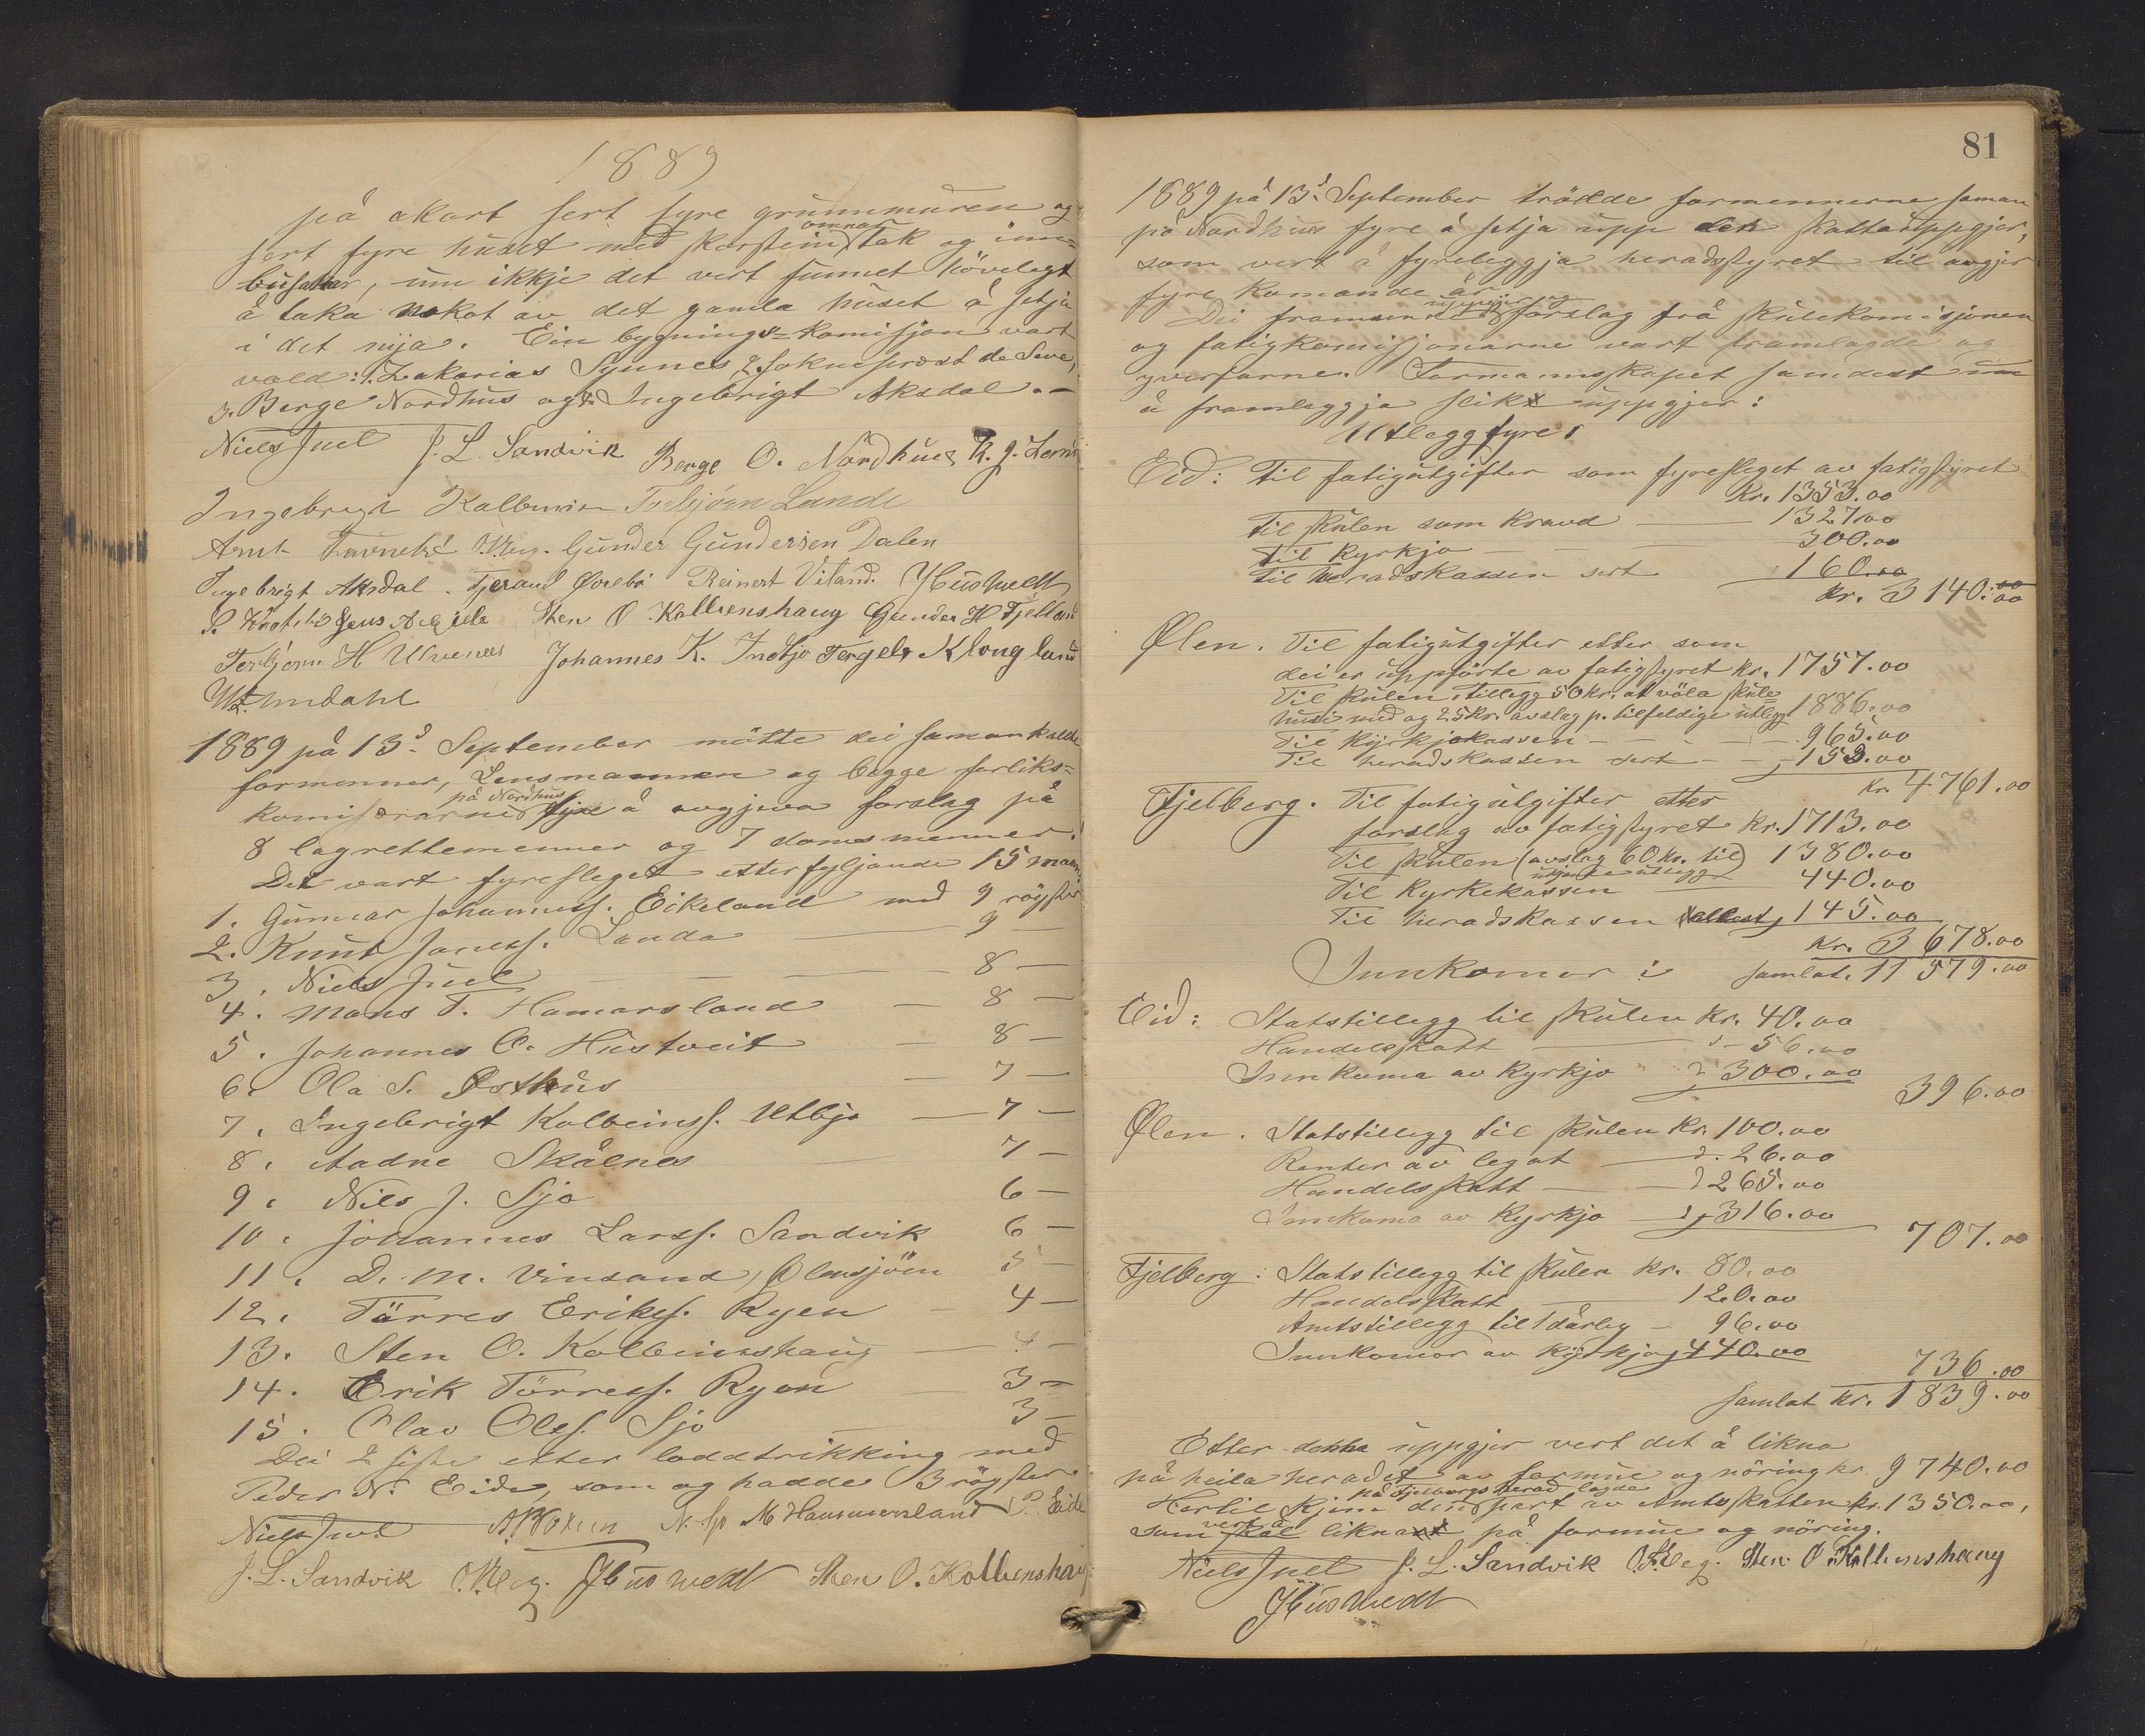 1889
på akort sert fyre grunnmuren og
sert fyre huset med skorstein, omnar, tak og inn-
busaker, um ikkje det vert funnet hövelegt
å taka nokot av det gamla huset å setja
i det nya. Ein bygnings-komisjon vart
vald: 1. Zakarias Synnes 2. sokneprest de Seve,
3. Berge Nordhus og 4. Ingebrigt Aksdal.-
Niels Juel J. L. Sandvik Berge O. Nordhus
Ingebrigt Torbjörn Lande
Gunder Gundersen Dalen
Ingebrigt Aksdal. Tjerand Övrebö Reinert Vitand. Huswedt
Sten O. Kolbenshaug Gunder H Fjelland
Torbjörn H Ulvenes Johannes K. Indbjo Torgels Klongland
1889 på 13d. September mötte dei samankallde
formenner, Lensmannen og begge forliks-
komisærarne på Nordhus fyre å avgjeva forslag på
8 lagrettemenner og 7 domsmenner.
Det vart fyresleget etterfyljande 15 mann:
1. Gunnar Johanness. Eikeland med 9 röyster
2. Knut Joness. Landa — 9 —
3. Niels Juel — 8 —
4. Mons T. Hamarsland — 8 —
5. Johannes O. Hustveit — 8 —
6. Ola S. Østhus — 7 —
7. Ingebrigt Kolbeinss. Utbjo — 7 —
8. Aadne Skålnes 7 —
9. Nils J. Sjo 6 —
10. Johannes Larss. Sandvik 6 —
11. D. M. Vinsand, Ølensjöen 5 —
12. Törres Erikss. Ryen — 4 —
13. Sten O. Kolbeinshaug — 4 —
14. Erik Törress. Ryen — 3 —
15. Olav Olss. Sjo — 3 —
Dei 2 siste etter loddtrikking med
Peder N. Eide, som og hadde 3 röyster.
Niels Juel N. Sjo M Hammersland P. Eide
J. L. Sandvik Huswedt Sten O. Kolbenshaug
81
1889 på 13d. September trödde formennerne saman
på Nordhus fyre å setja upp den skatteuppgjer,
som vert å fyreleggja heradsstyret til avgjer
fyre komande år.
Dei framsende uppgjer og forslag frå skulekomisjonen
og fatigkomisjonarne vart framlagde og
yverfarne. Formannskapet samdest um
å framleggja slikt uppgjer:
Utlegg fyre:
Eid: Til fatigutgifter som fyresleget av fatigstyret
Kr. 1353.00
Til skulen som kravd — 1327.00
Til kyrkja — 300.00
Til heradskassen sert — 160.00
Kr. 3140.00
Ølen. Til fatigutgifter etter som
dei er uppförte av fatigstyret kr. 1757.00
Til skulen, tillegg 50 kr. at völa skule-
husi med og 25 kr. avslag p. tilfeldige utlegg 1886.00
Til kyrkjekassen — 965.00
Til heradskassen sert — 153.00
Kr. 4761.00
Fjelberg. Til fatigutgifter etter
forslag av fatigstyret Kr. 1713.00
Til skulen (avslag 60 kr. til utlegg) 1380.00
Til Kyrkekassen — 440.00
Til heradskassen 145.00
Kr. 3678.00
Innkomor: samlat. 11579.00
Eid: Statstillegg til skulen Kr. 40.00
Handelsskatt — 56.00
Innkoma av kyrkja 300.00
396.00
Ølen. Statstillegg til skulen Kr. 100.00
Renter av legat — 26.00
Handelsskatt — 265.00
Innkoma av kyrkja — 316.00
707.00
Fjelberg: Statstillegg til skulen kr. 80.00
Handelsskatt — 120.00
Amtstillegg til 1 dårleg — 96.00
Innkomor av kyrkja 440.00
736.00
Samlat Kr. 1839.00
Etter dekka uppgjer vert det å likna
på heila heradet av formue og nöring kr. 9740.00
Hertil kjem den på Fjelbergs herad lagde part av Amtsskatten kr. 1350.00,
som vert å likna på formue og nöring.
Niels Juel J. L. Sandvik Sten O Kolbenshaug
Huswedt